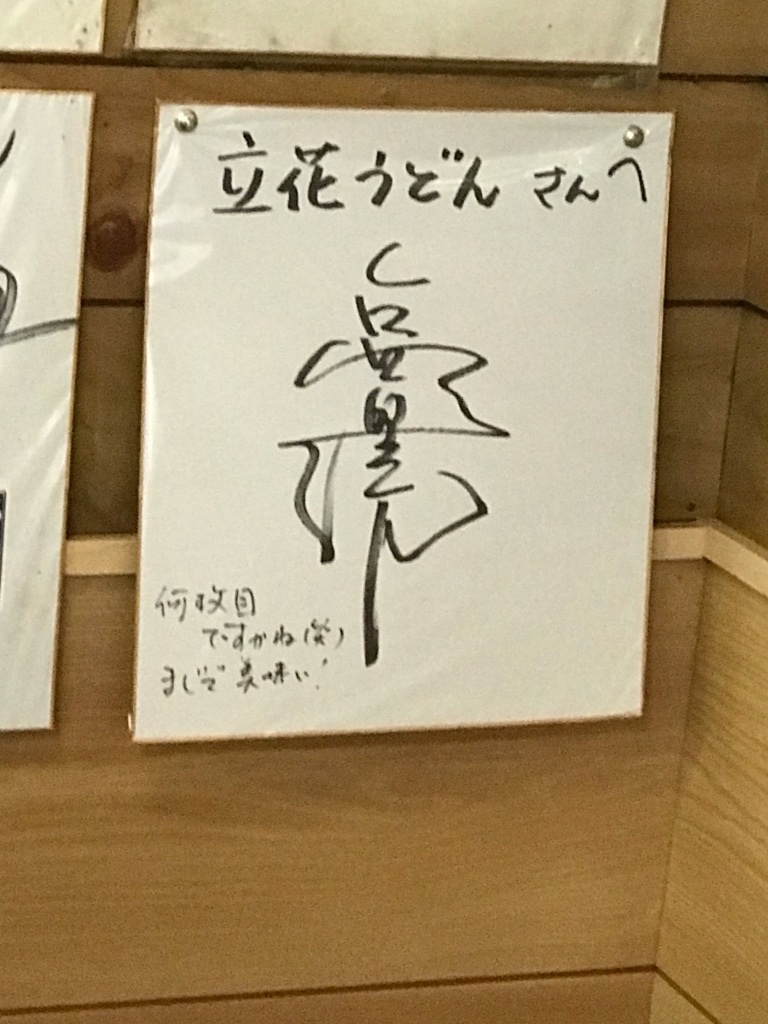 立花うどん さんへ
何枚目
ですかね(笑)
まじで美味い!